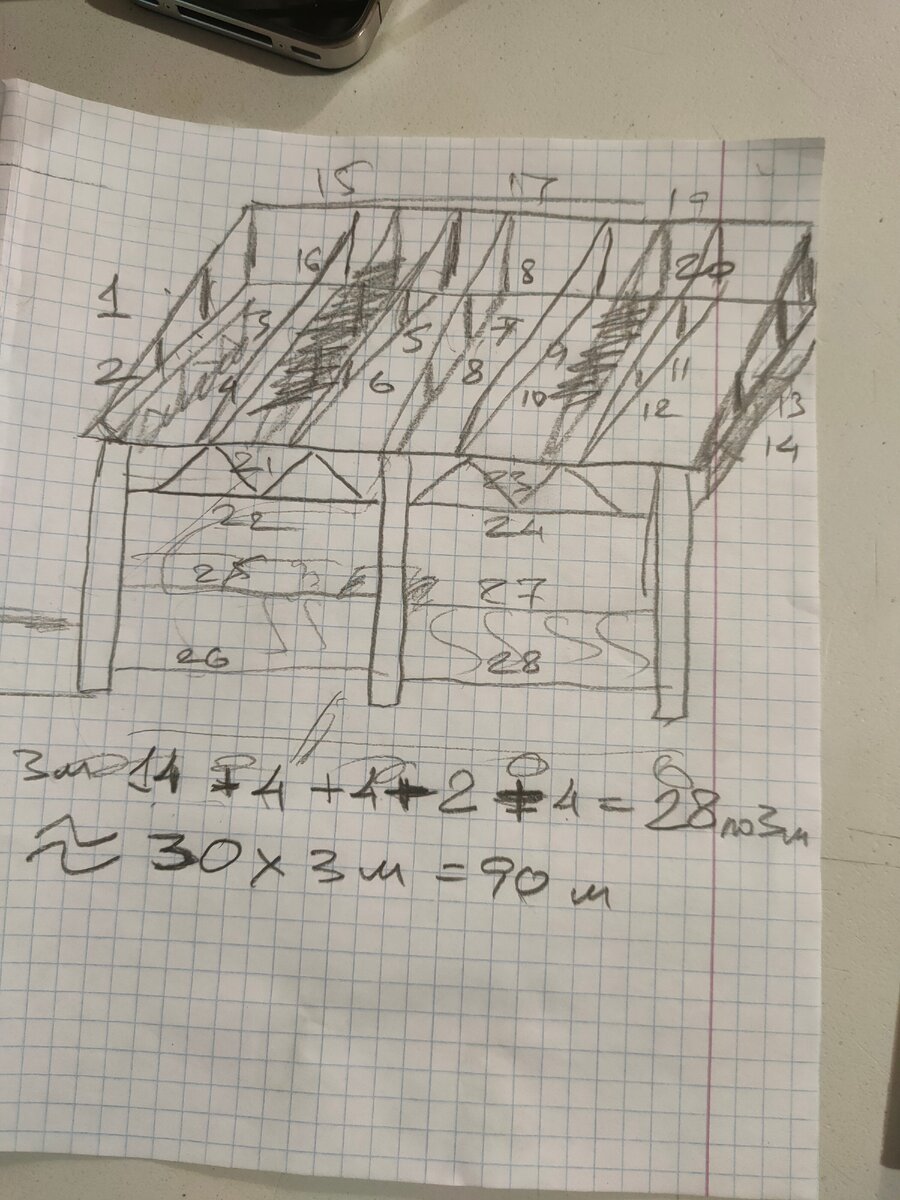 15 17 19
16 8 20
1 3 7
5 9
2 4 6 8 10 11
12 13
14
21 23
22 24
25 27
26 28
3м 14 + 4 + 4 + 2 + 4 = 28 по 3м
≈ 30 x 3 м = 90 м